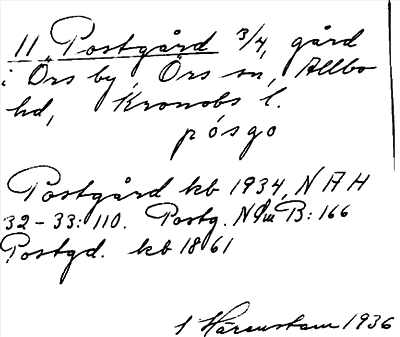 11 Postgård 3/4, gård
i Örs by, Örs sn, Allbo
hd, Kronobs l.
pósgo
Postgård kb 1934, NAH
32-33:110. Postg. B:166
Postgd. kb 1861
Härenstam 1936